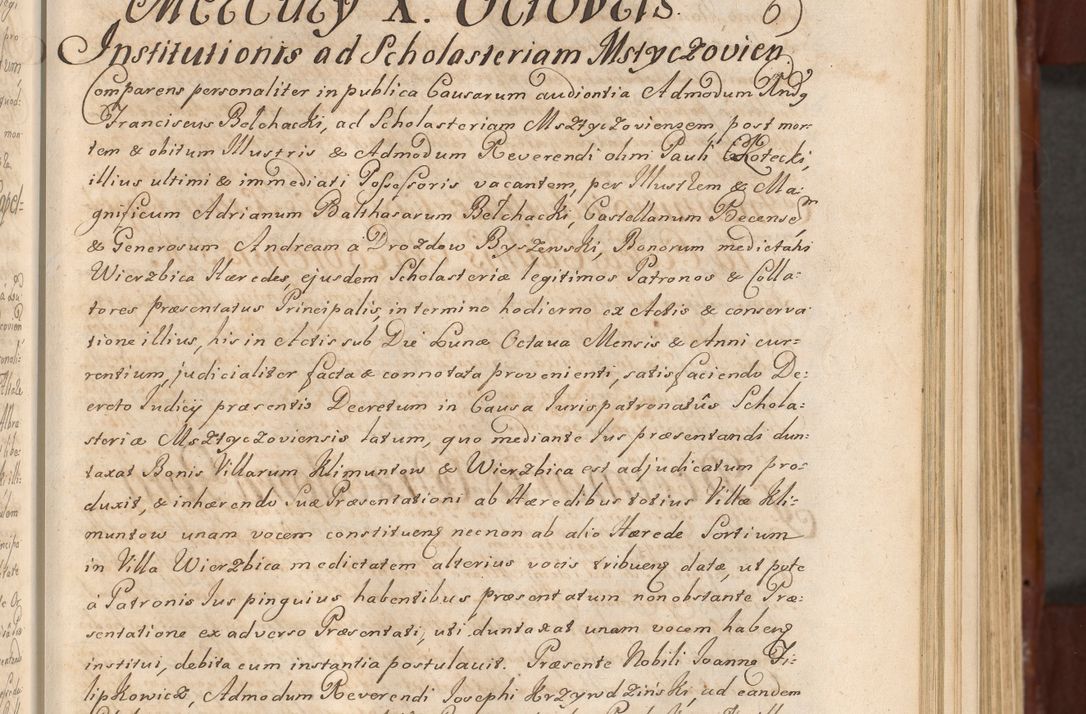 Mercurij X. Octobris.
Institutionis ad Scholasteriam Mstyczovien
Comparens personaliter in publica Causarum audientia Admodum Rndg
Franciscus Bełchacki, ad Scholasteriam Msztyczoviensem post mor:
tem & obitum Illustris & Admodum Reverendi olim Pauli Kotecki,
illius ultimi & immediati Possessoris vacantem, per Illustrem & Ma:
gnificum Adrianum Balthasarum Bełchacki, Castellanum Recensem
& Generosum Andream à Drozdow Byszewski, Bonorum medictatis
Wierzbica Hæredes, ejusdem Scholasteriæ legitimos Patronos & Colla:
tores præsentatus Principalis, in termino hodierno ex Actis & conserva
tione illius, his in Actis sub Die Lunæ Octava Mensis & Anni cur:
rentium, judicialiter facta & connotata provenienti, satisfaciendo De:
creto Iudicij præsentis Decretum in Causa Iurispatronatûs Schola:
steriæ Msztyczoviensis latum, quo mediante Ius præsentandi dun:
taxat Bonis Villarum Klimuntow & Wierzbica est adjudicatum pro:
duxit, & inhærendo suæ Præsentationi ab Hæredibus totius Villæ Kli:
muntow unam vocem constitueng necnon ab alio Hærede Sortium
in Villa Wierzbica medictatem alterius vocis tribueng datæ, ut pote
à Patronis Ius pinguius habentibus præsentatum non obstante Præ:
sentatione ex adverso Præsentati, uti duntaxat unam vocem habeng
institui, debita cum instantia postulavit. Præsente Nobili Ioanne Fi:
lipkowicz, Admodum Reverendi Iosephi Krzywdziński, ad eandem